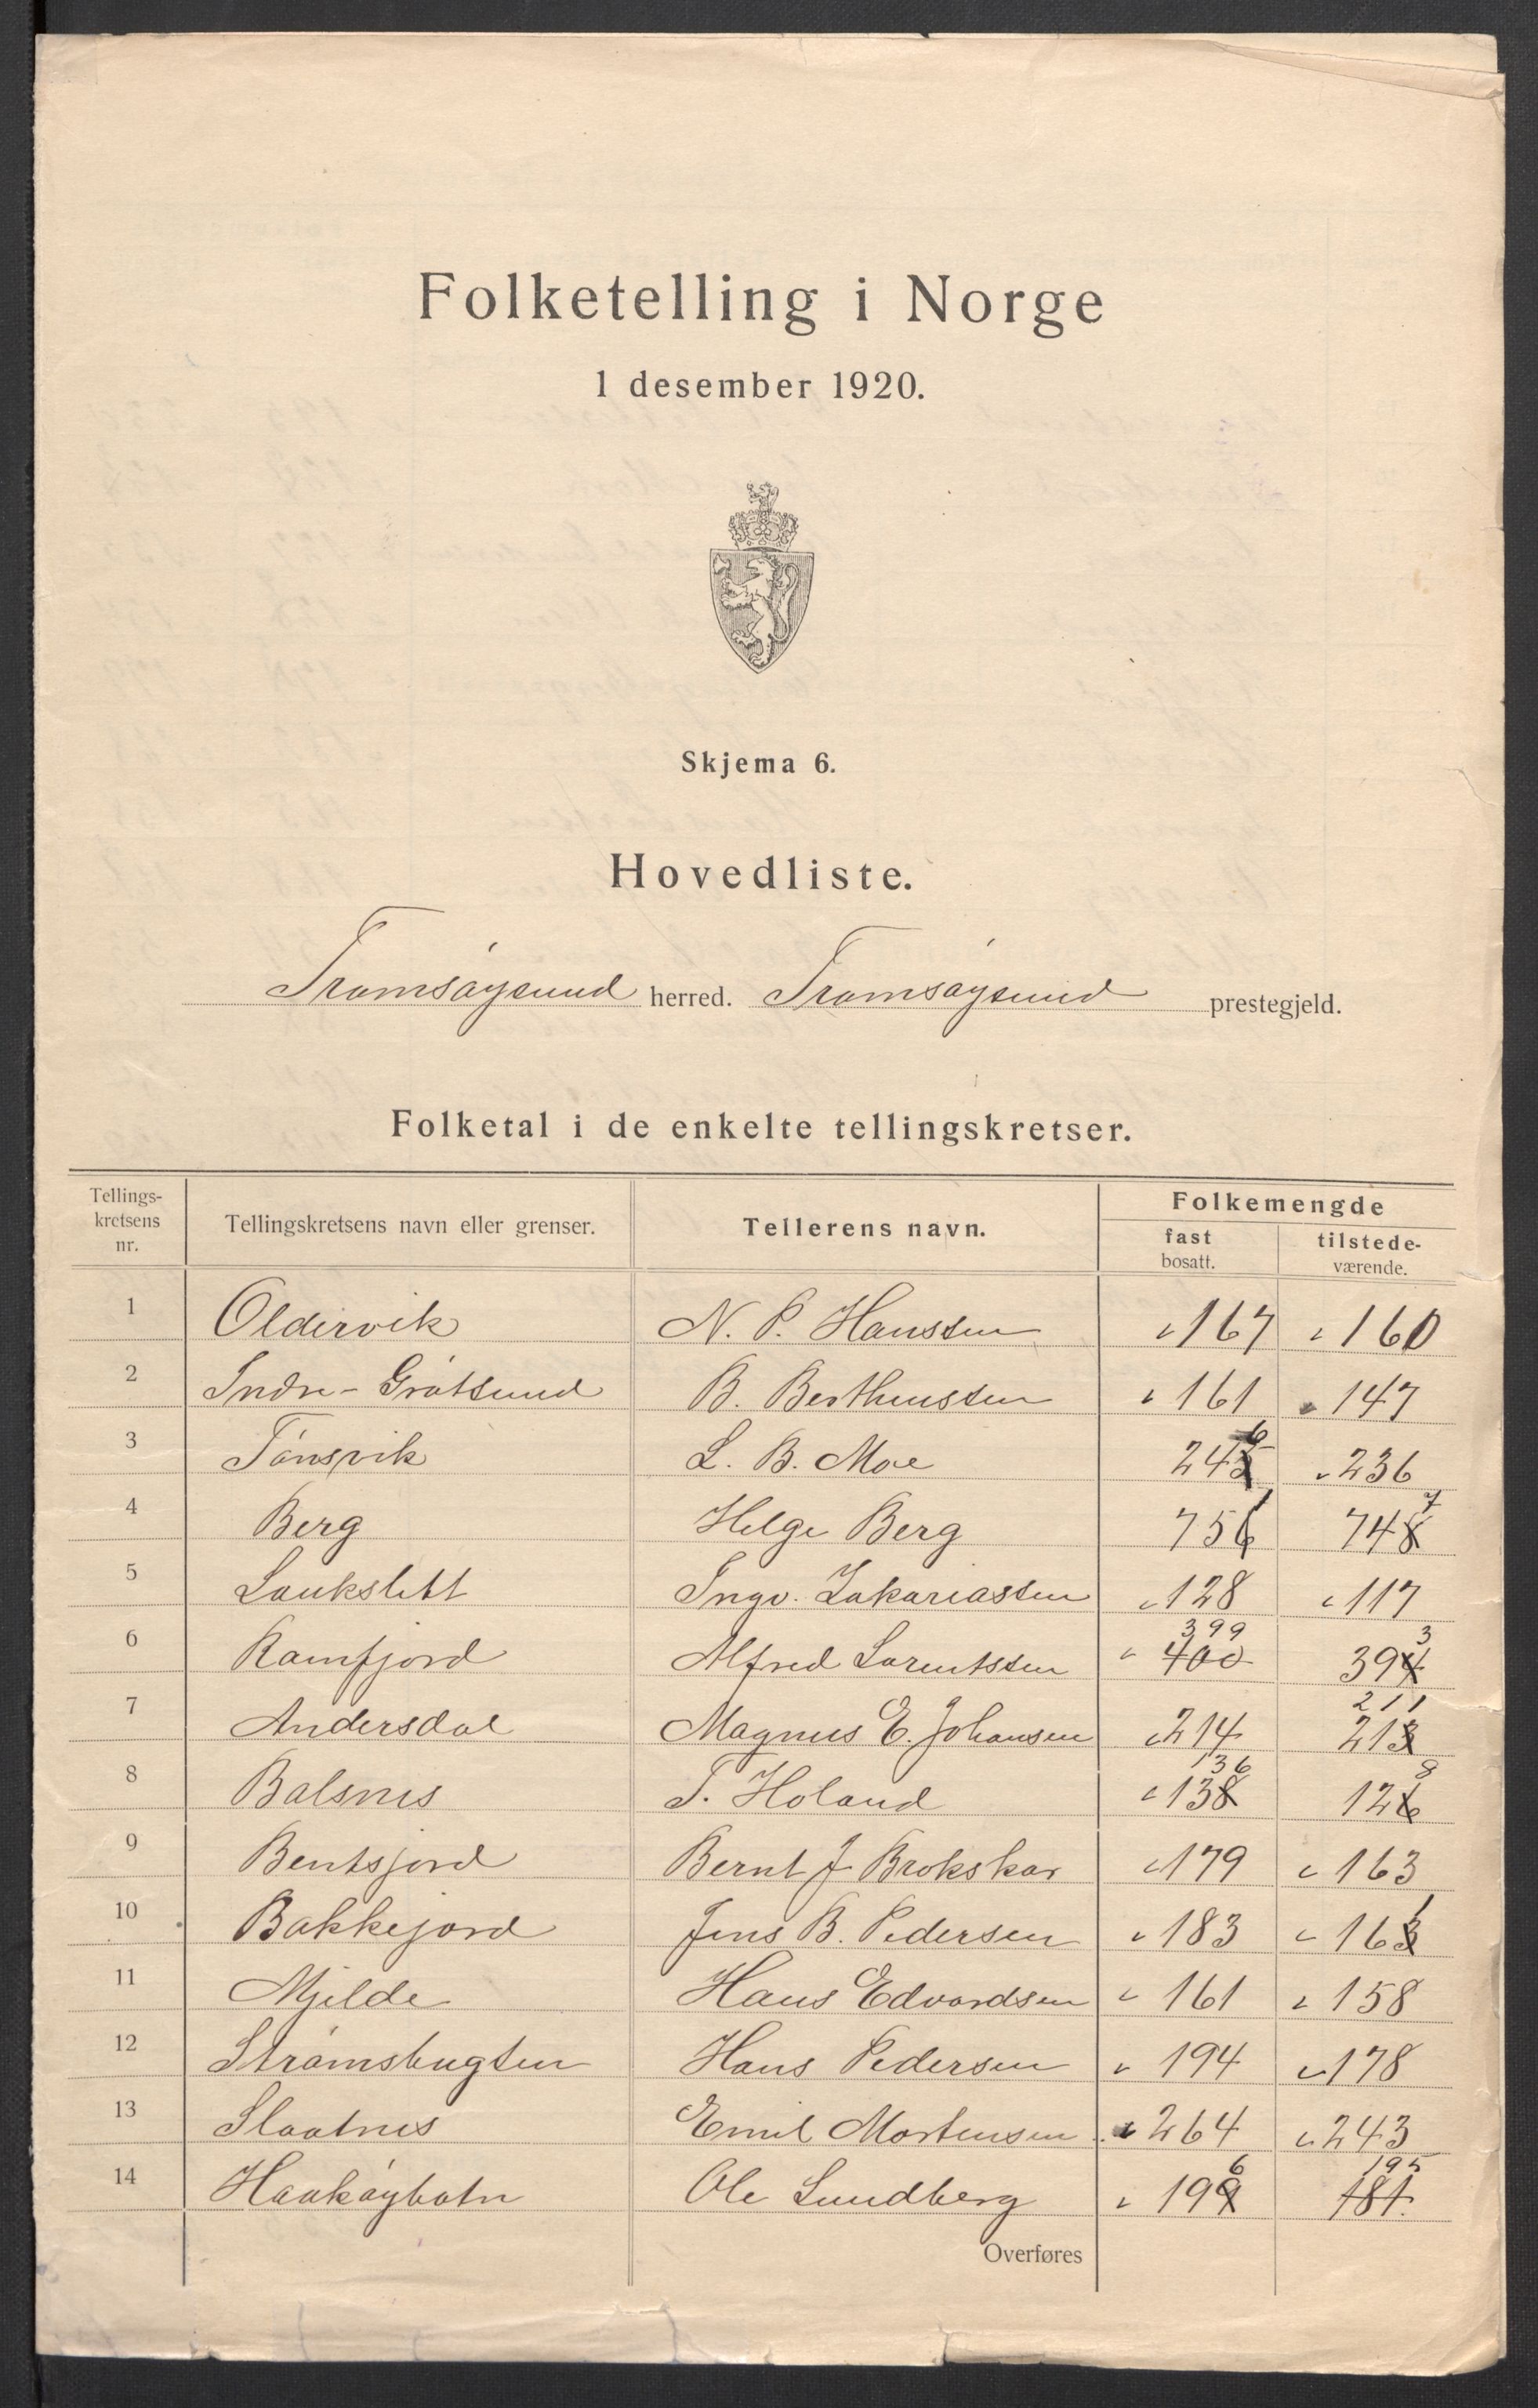 Folketelling i Norge
1 desember 1920.
Skjema 6.
Hovedliste.
Tromsøysund herred. Tromsøysund prestegjeld.
Folketal i de enkelte tellingskretser.
Tellings-kretsens nr. Tellingskretsens navn eller grenser. Tellerens navn. Folkemengde fast bosatt. tilstede-værende.
1 Oldervik N. P. Hanssen 167 160
2 Indre-Grøtsund B. Bertheussen 161 147
3 Tønsvik L. B. Moe 245 6 236
4 Berg Helge Berg 756 1 748 7
5 Laukslett Ingv. Zakariassen 128 117
6 Ramfjord Alfred Lorentssen 400 399 394 3
7 Andersdal Magnus E. Johansen 214 213 211
8 Balsnes T. Holand 138 136 126 8
9 Bentsjord Bernt J Brokskar 179 163
10 Bakkejord Jens B. Pedersen 183 163 1
11 Mjelde Hans Edvardsen 161 158
12 Strømsbugten Hans Pedersen 194 178
13 Slaatnes Emil Mortensen 264 243
14 Haakøybotn Ole Lundberg 199 6 181. 195
Overføres